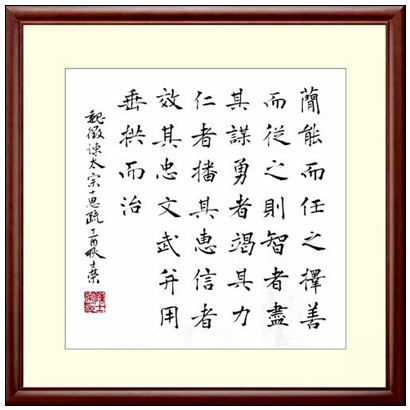 簡能而任之擇善
而從之則智者盡
其謀勇者竭其力
仁者播其惠信者
效其忠文武并用
垂拱而治
魏徵諫太宗十思疏丁酉秋士荣